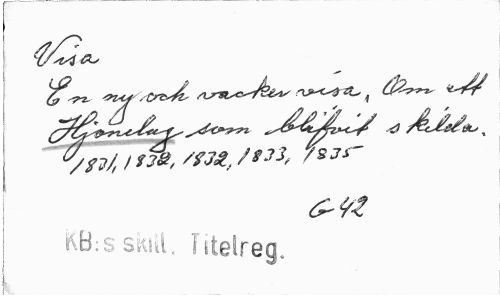 Visa
En ny och vacker visa, Om ett
Hjonelag som blifvit skilda.
1831, 1832, 1832, 1833, 1835
G 42
KB:s skill. Titelreg.